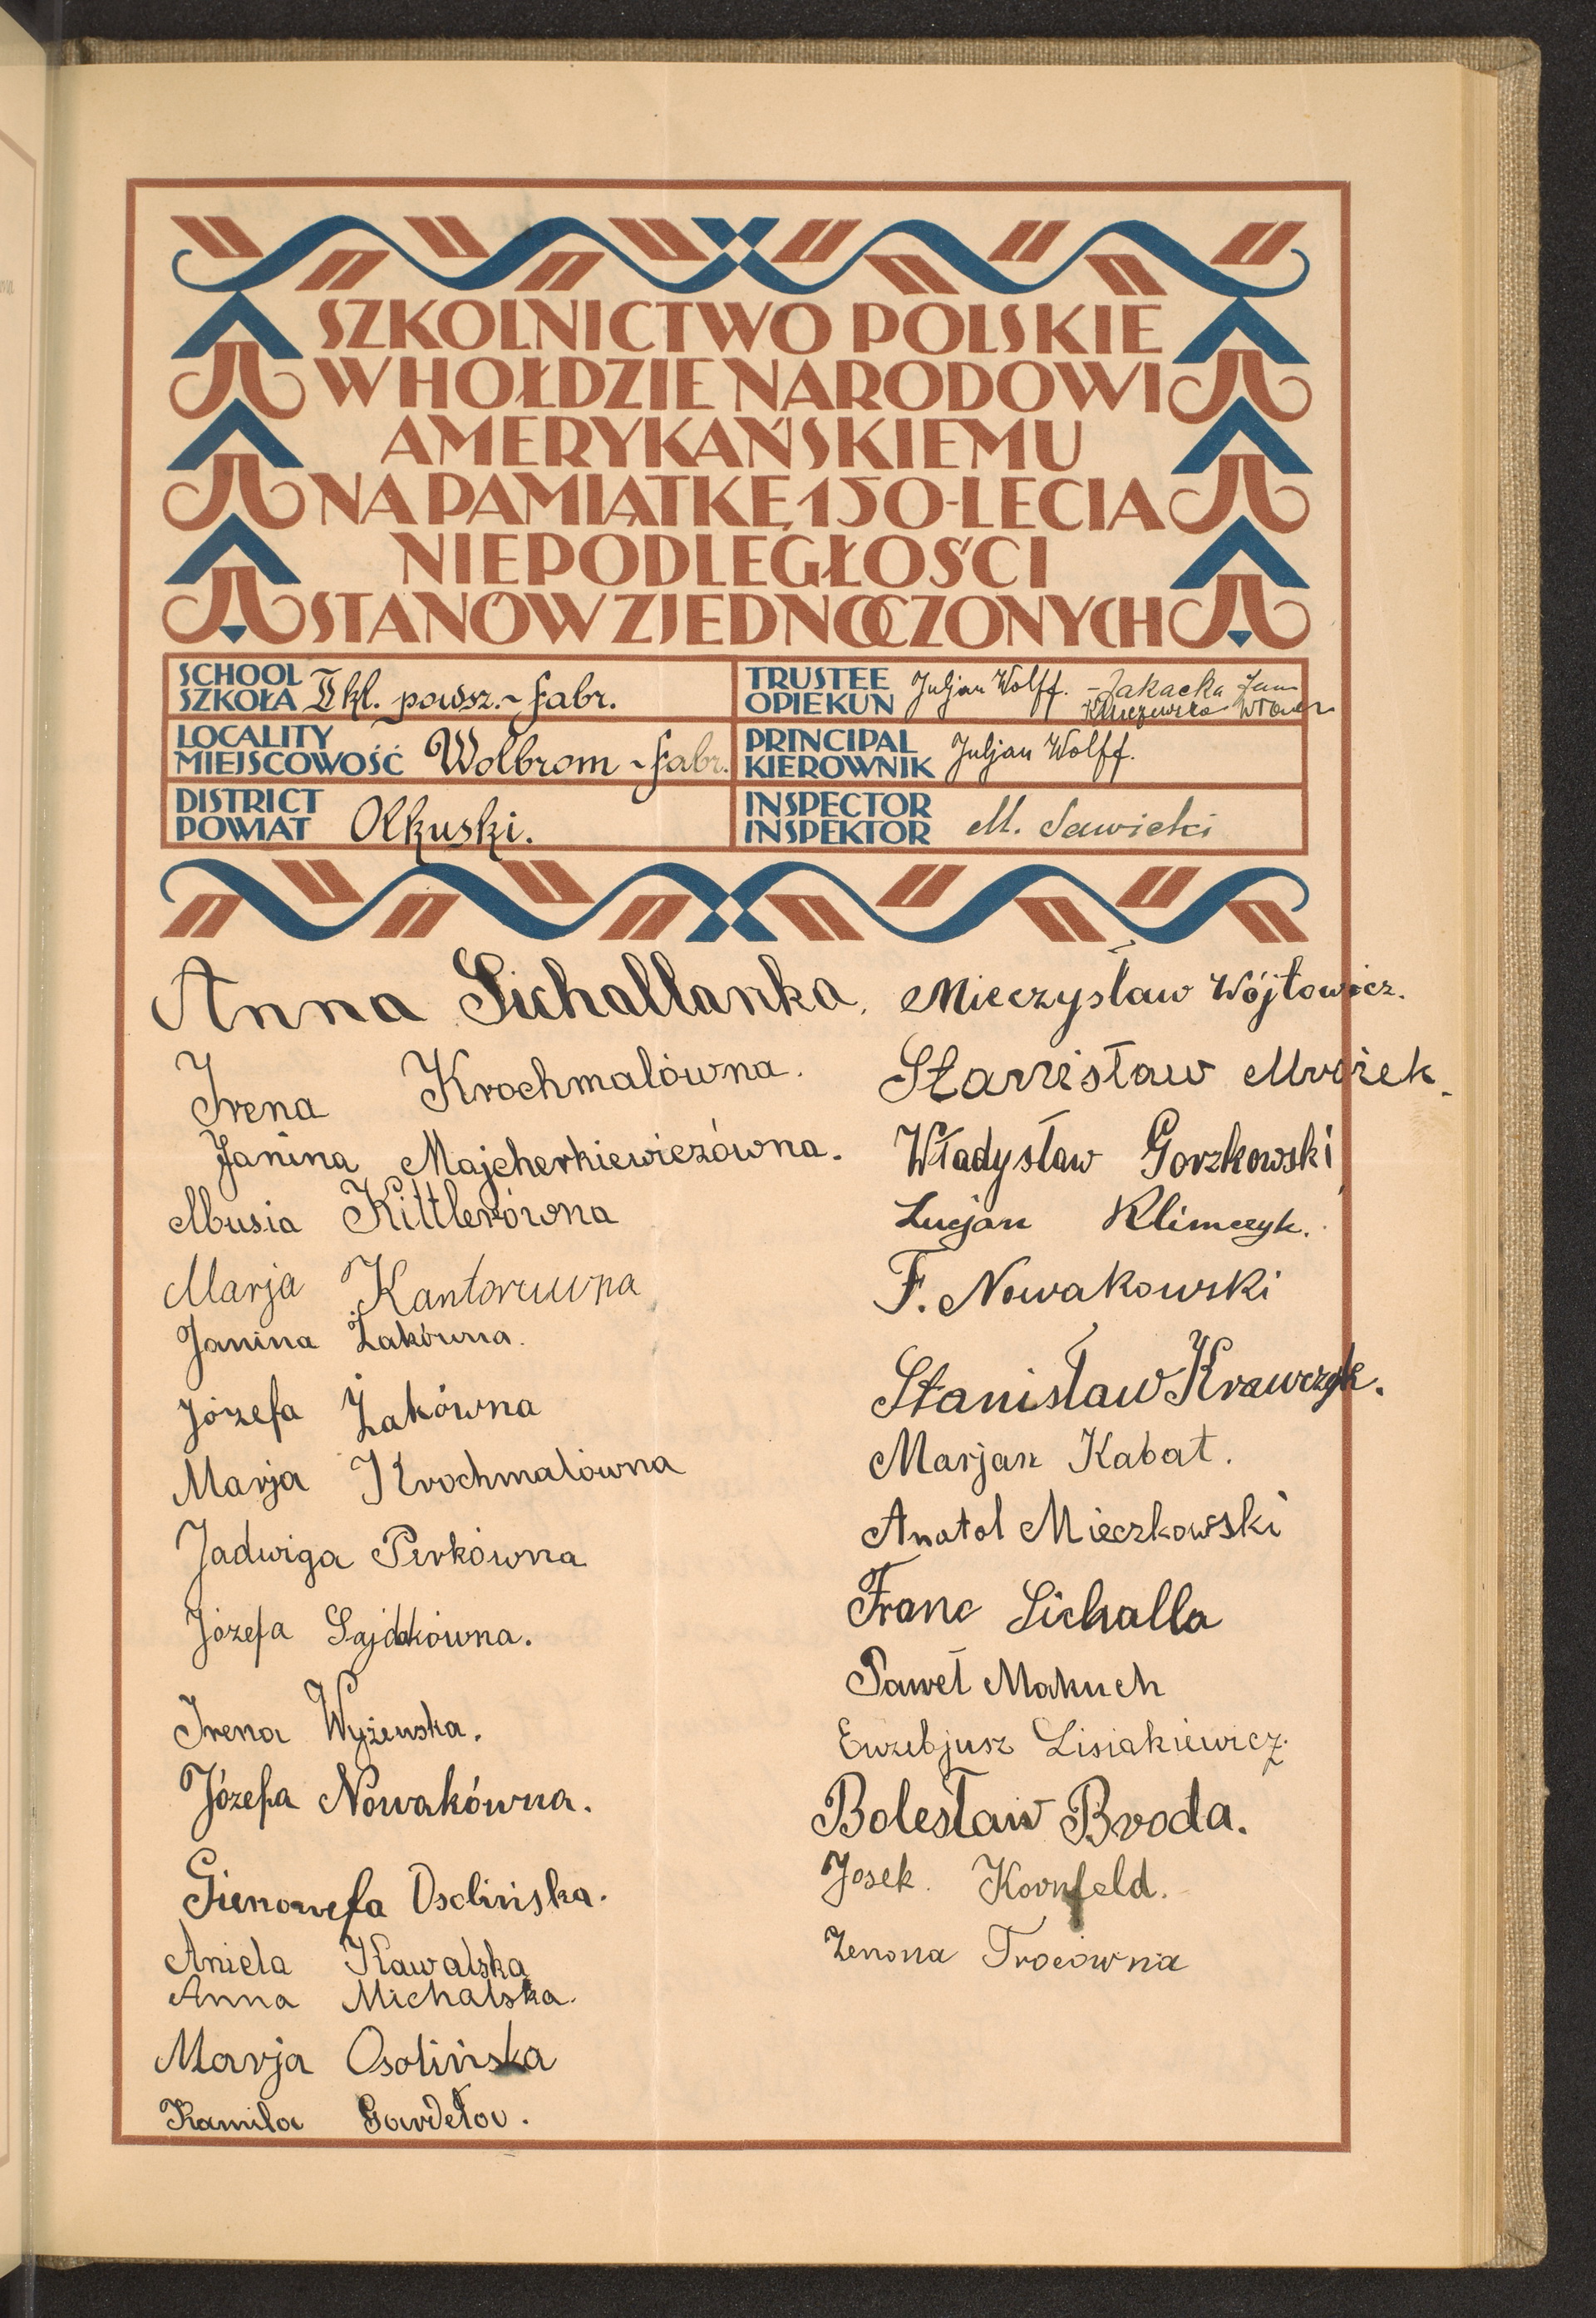 SZKOLNICTWO POLSKIE
W HOŁDZIE NARODOWI
AMERYKAŃSKIEMU
NA PAMIĄTKĘ 150-LECIA
NIEPODLEGŁOŚCI
STANÓW ZJEDNOCZONYCH
SCHOOL
SZKOŁA kl. powsz.-fabr.
TRUSTEE
OPIEKUN Juljan Wolff. - Żakacka
LOCALITY
MIEJSCOWOŚĆ Wolbrom - fabr.
PRINCIPAL
KIEROWNIK Juljan Wolff.
DISTRICT
POWIAT Olkuski.
INSPECTOR
INSPEKTOR M. Sawicki
Anna Sichallanka.
Irena Krochmalówna.
Janina Majcherkiewiczówna.
Musia Kittlerówna
Marja Kantoruwna
Janina Żakówna.
Józefa Żakówna
Marja Krochmalówna
Jadwiga Perkówna
Józefa Sajdakówna.
Irena Wyżewska.
Józefa Nowakówna.
Gienowefa Osolińska.
Aniela Kawalska
Anna Michalska.
Marja Osolińska
Kamila
Mieczysław Wójtowicz.
Stanisław Mrożek.
Władysław Gorzkowski
Lucjan Klimczyk.
F. Nowakowski
Stanisław Krawczyk.
Marjan Kabat.
Anatol Mieczkowski
Franc Sichalla
Paweł Makuch
Euzebjusz Lisiakiewicz.
Bolesław Broda.
Josek. Kornfeld.
Zenona Trociówna